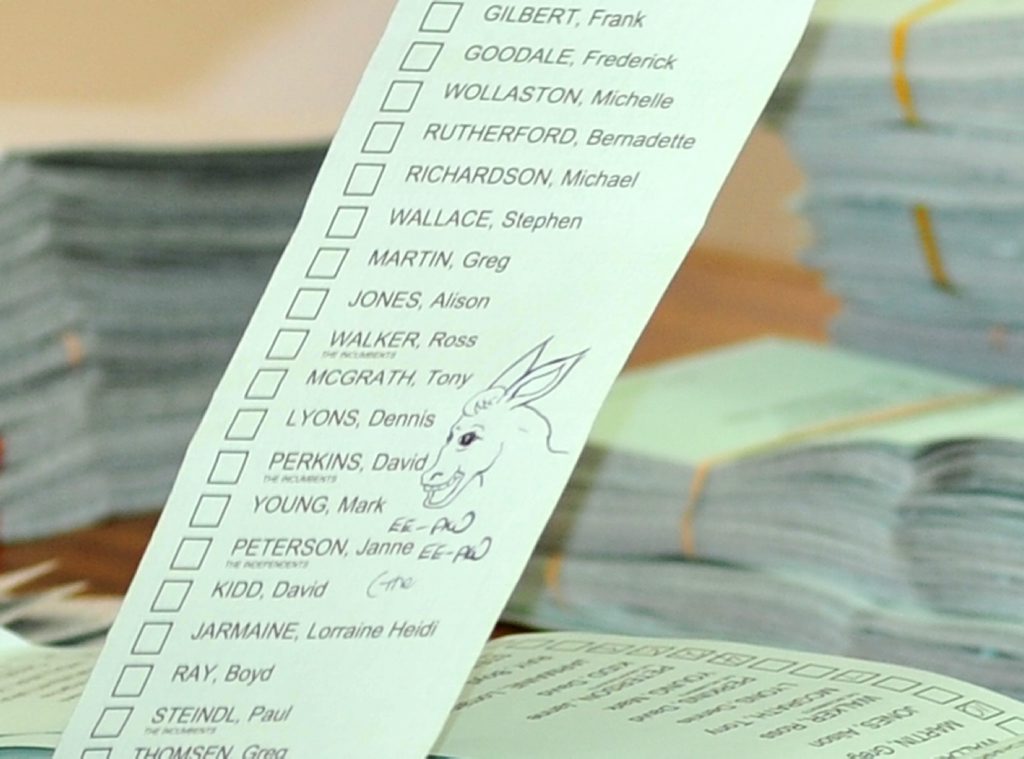 GILBERT, Frank
GOODALE, Frederick
WOLLASTON, Michelle
RUTHERFORD, Bernadette
RICHARDSON, Michael
WALLACE, Stephen
MARTIN, Greg
JONES, Alison
WALKER, Ross
THE INCUMBENTS
MCGRATH, Tony
LYONS, Dennis
PERKINS, David
THE INCUMBENTS
YOUNG, Mark
EE-AW
PETERSON, Janne EE-AW
THE INDEPENDENTS
KIDD, David (the
JARMAINE, Lorraine Heidi
RAY, Boyd
STEINDL, Paul
THE INCUMBENTS
THOMSEN, Greg
MARTIN, Greg
JONES, Alison
WALKER, Ross
MCGRATH, Tony
LYONS, Dennis
PERKINS, David
YOUNG, Mark
PETERSON, Janne
KIDD, David